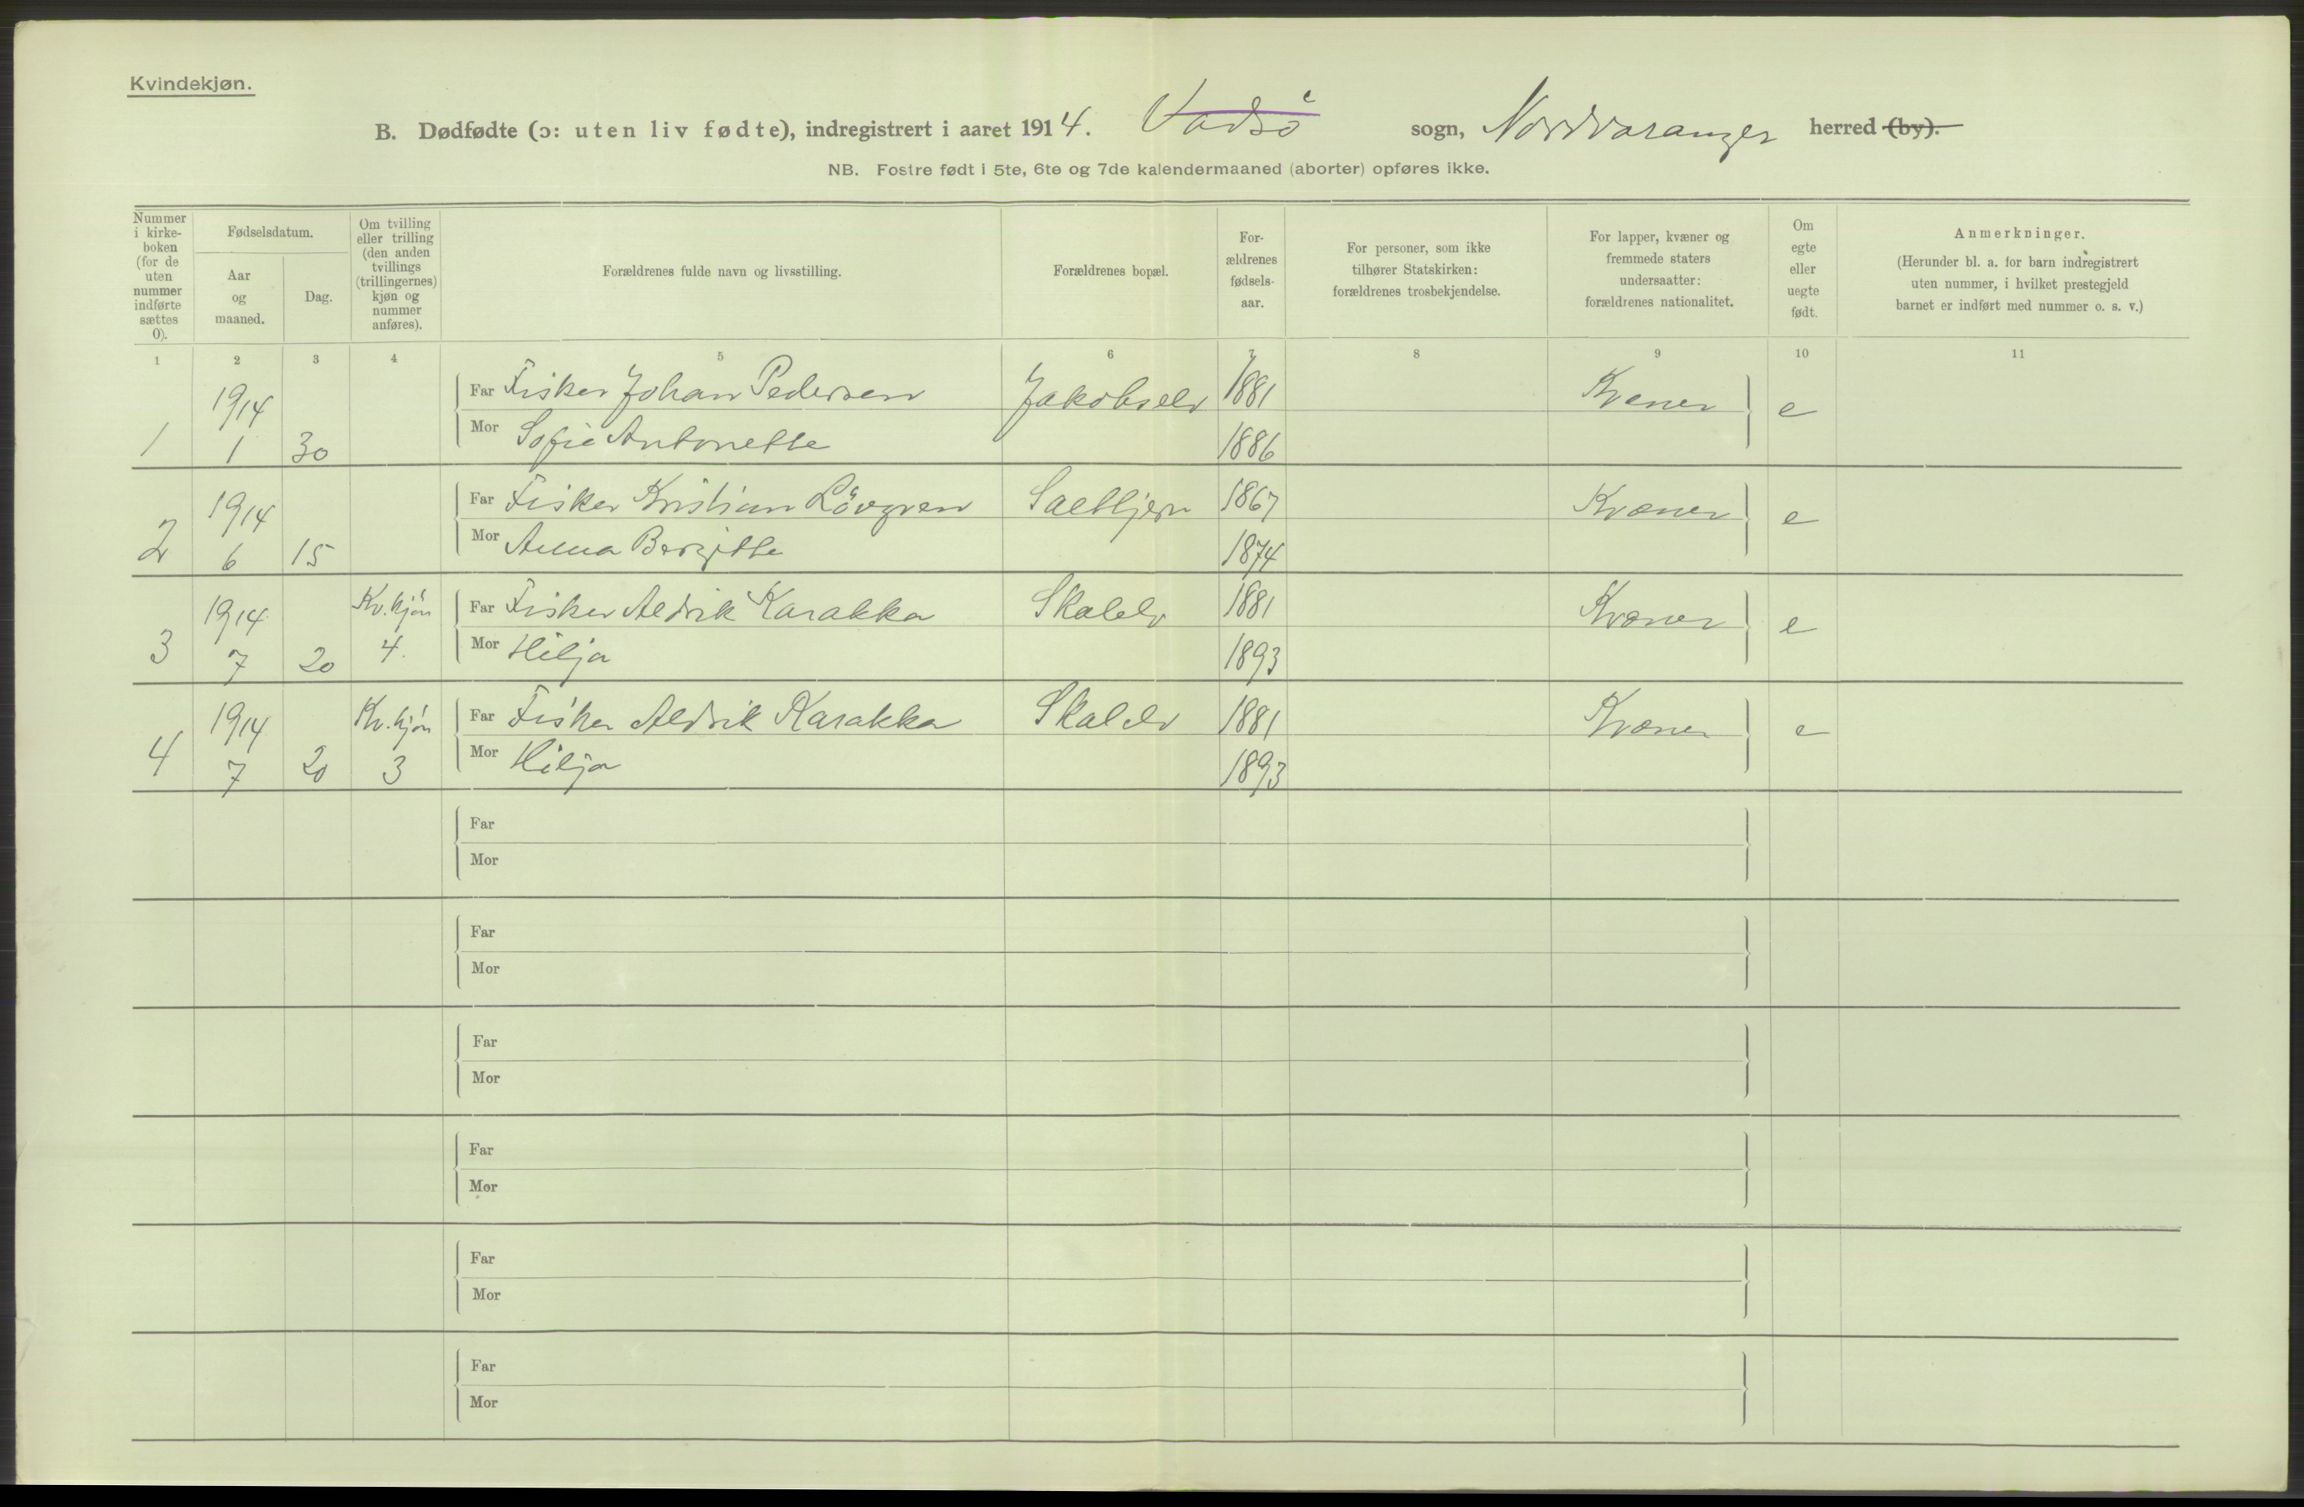 Kvindekjøn.
B. Dødfødte (ɔ: uten liv fødte), indregistrert i aaret 1914. Vadsö sogn, Nordvaranger herred (by).
NB. Fostre født i 5te, 6te og 7de kalendermaaned (aborter) opføres ikke.
Nummer i kirke-boken (for de uten nummer indførte sættes 0).
Fødselsdatum.
Aar og maaned.
Dag.
Om tvilling eller trilling (den anden tvillings (trillingernes) kjøn og nummer anføres).
Forældrenes fulde navn og livsstilling.
Forældrenes bopæl.
For-ældrenes fødsels-aar.
For personer, som ikke tilhører Statskirken: forældrenes trosbekjendelse.
For lapper, kvæner og fremmede staters undersaatter: forældrenes nationalitet.
Om egte eller uegte født.
Anmerkninger.
(Herunder bl. a. for barn indregistrert uten nummer, i hvilket prestegjeld barnet er indført med nummer o. s. v.)
1 2 3 4 5 6 7 8 9 10 11
1914 Far Fisker Johan Pedersen Jakobselv 1881 Kvener e
1 1 30 Mor Sofie Antonette 1886
1914 Far Fisker Kristian Lövgren 1867 Kvæner e
2 6 15 Mor Anna Bergitte 1874
1914 Kv. kjön Far Fisker Aldrik Karakka Skalelv 1881 Kvæner e
3 7 20 4. Mor Hilja 1893
1914 Kv. kjön Far Fisker Aldrik Karakka Skalelv 1881 Kvæner e
4 7 20 3 Mor Hilja 1893
Far
Mor
Far
Mor
Far
Mor
Far
Mor
Far
Mor
Far
Mor